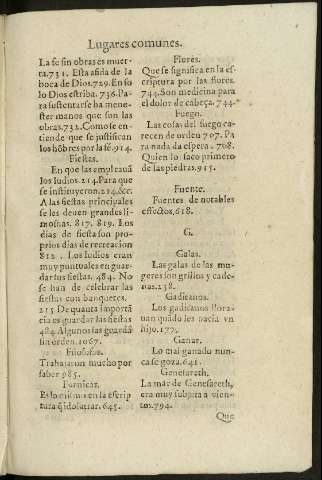 Lugares comunes.
La fe sin obras es muer
ta.731. Esta asida de la
boca de Dios.729. En so
lo Dios estriba. 736. Pa
ra sustentarse ha mene-
ster manos que son las
obras.732. Como se en-
tiende que se justifican
los hõbres por la fe.914.
Fiestas.
En que las
los Iudios.214. Para que
se instituyeron.214.&c.
A las fiestas principales
se les deuen grandes li-
mosnas. 817. 819. Los
dias de fiesta son pro-
prios dias de recreacion
812. Los Iudios eran
muy puntuales en guar-
dar sus fiestas. 484. No
se han de celebrar las
fiestas con banquetes.
215 De quanta importã
cia es guardar las fiestas
484. Algunos las guardã
sin orden. 1067.
Filosofos.
Trabajaron mucho por
saber 985.
Fornicar.
Es lo mismo en la escrip
tura q̃ idolatrar. 645.
Flores.
Que se significa en la es-
criptura por las flores.
744. Son medicina para
el dolor de cabeça. 744.
Fuego.
Las cosas del fuego ca-
recen de orden 707. Pa
ra nada da espera. 708.
Quien lo saco primero
de las piedras. 915.
Fuente.
Fuentes de notables
effectos. 618.
G.
Galas.
Las galas de las mu-
geres son grillos y cade-
nas. 238.
Gadicanos.
Los gadicanos llora-
uan quãdo les nacia vn
hijo. 177.
Ganar.
Lo mal ganado nun-
ca se goza. 641.
Genesareth.
La mar de Genesareth,
era muy subjeta a vien-
tos. 794.
Que